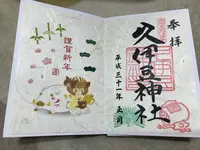 奉拝
久伊豆神社
平成三十一年 正月
謹賀新年